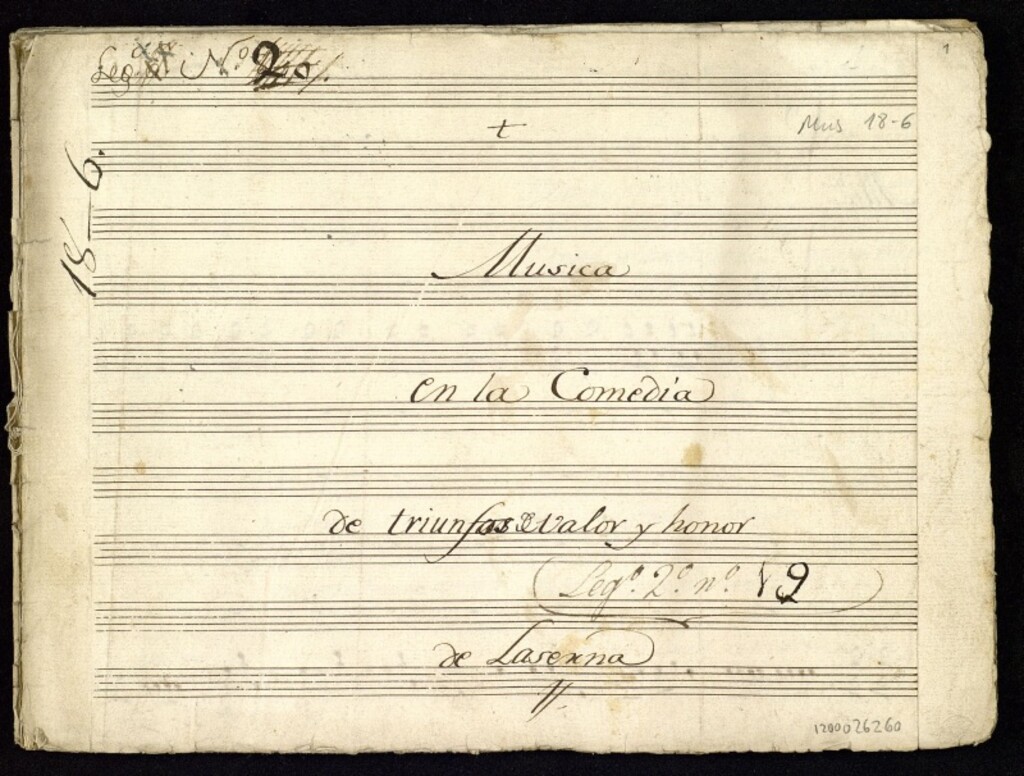 Leg.º Nº 2
1
t
Mus 18-6
18-6.
Musica
en la Comedia
de triunfos de valor y honor
Leg.º 2.º n.º 19
de Laserna
1200026260